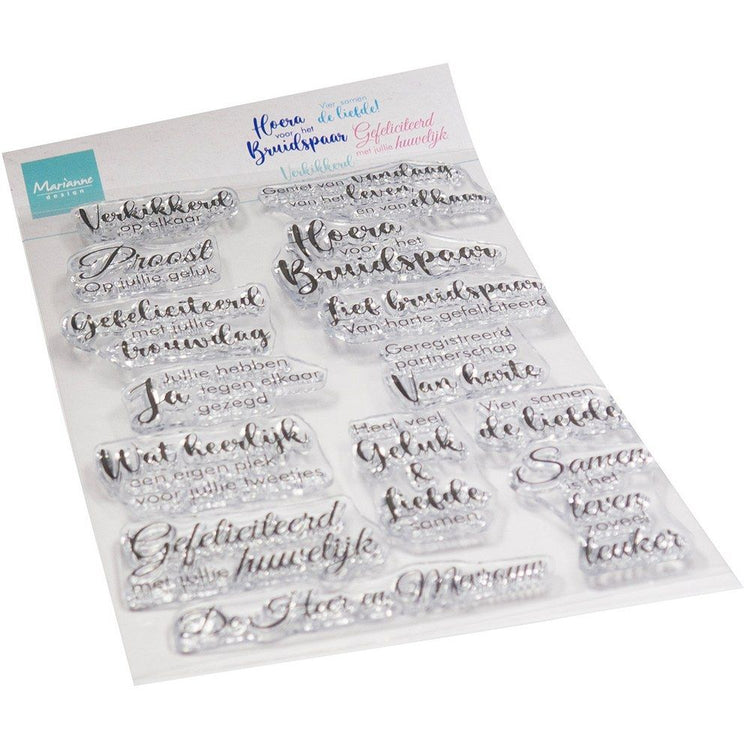 Hoera
voor het
Bruidspaar
Vier samen
de liefde!
Gefeliciteerd
met jullie huwelijk
Verkikkerd
Marianne
design
Verkikkerd
op elkaar
Geniet van vandaag
van het leven
en van elkaar
Proost
Op jullie geluk
Hoera
voor het
Bruidspaar
Gefeliciteerd
met jullie
trouwdag
Lief bruidspaar
Van harte gefeliciteerd
Jullie hebben
Ja tegen elkaar
gezegd
Geregistreerd
partnerschap
Van harte
Wat heerlijk
een eigen plek
voor jullie tweetjes
Heel veel
Geluk
&
Liefde
samen
Vier samen
de liefde
Samen
is het
leven
zoveel
leuker
Gefeliciteerd
met jullie huwelijk
De Heer en Mevrouw